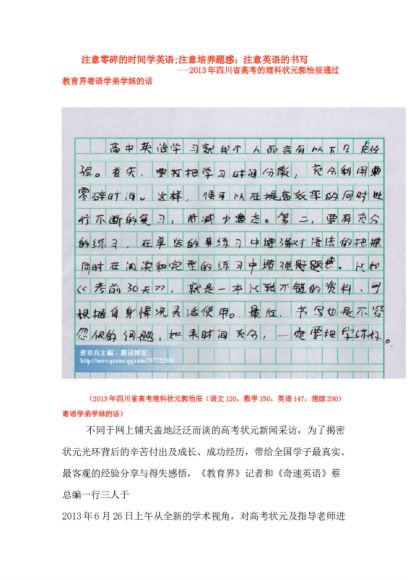 注意零碎的时间学英语;注意培养题感；注意英语的书写
——2013年四川省高考的理科状元郭怡辰通过
教育界寄语学弟学妹的话
高中英语学习就我个人而言有以下几点经
验。首先，要对把学习时间分散，充分利用
零碎时间。这样，便可以在提高效率的同时进
行不断的复习，
第二，要有充分
的练习，在单选的单练习中增强对语法的把握
同时在阅读和完型的练习中增强题感。比如
《考前30天》，就是一本比较不错的资料，可
根据自身情况灵活使用。最后，书写也是不容
忽视的问题，如果时间充分，一定要把字练好。
蔡章兵主编－腾讯博客
（2013年四川省高考理科状元郭怡辰（语文120，数学150，英语147，理综290）
寄语学弟学妹的话）
不同于网上铺天盖地泛泛而谈的高考状元新闻采访，为了揭密
状元光环背后的辛苦付出及成长、成功经历，带给全国学子最真实、
最客观的经验分享与得失感悟，《教育界》记者和《奇速英语》蔡
总编一行三人于
2013年6月26日上午从全新的学术视角，对高考状元及指导老师进